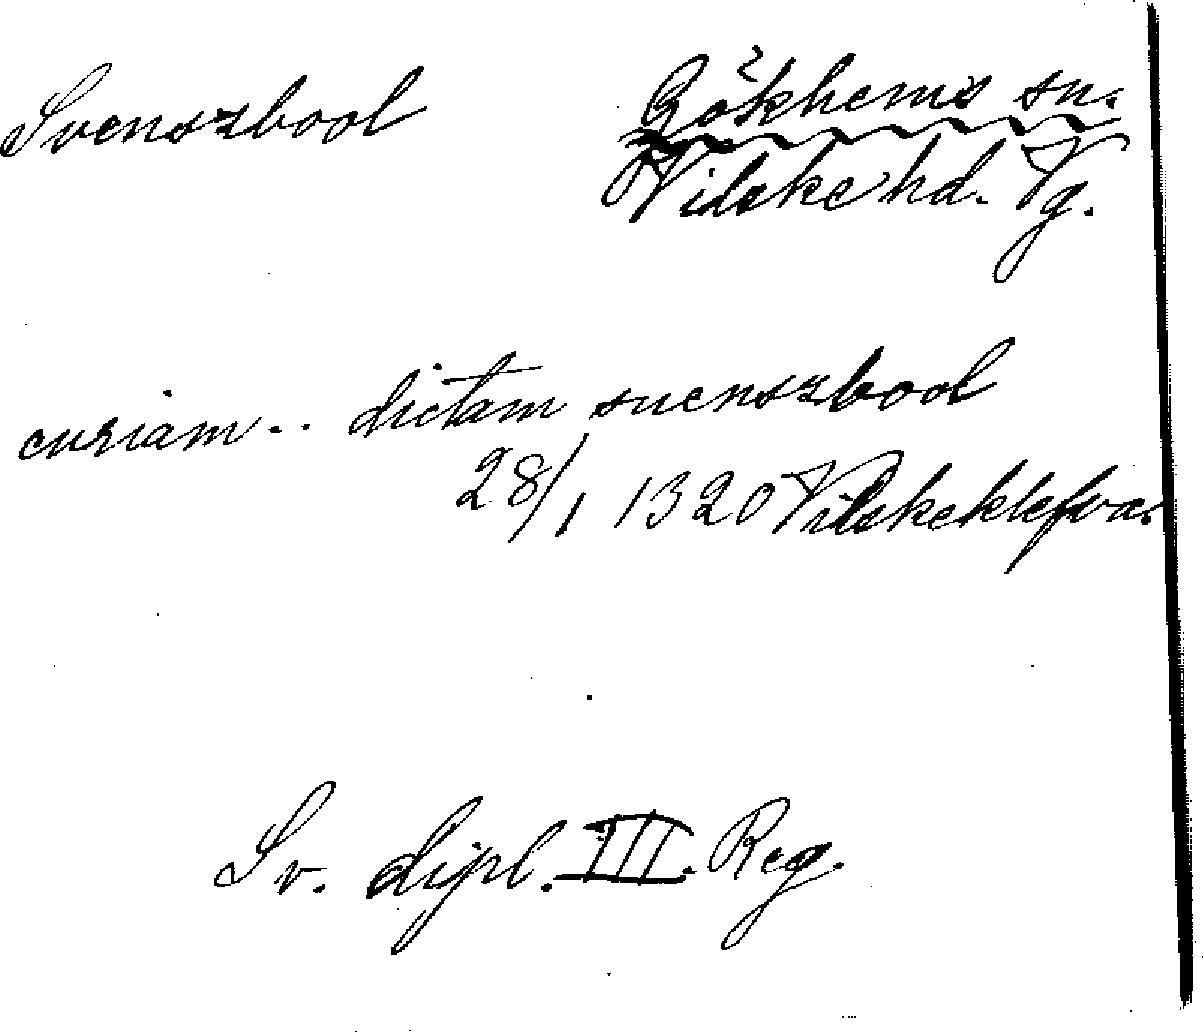 Svenszbool Gökhems sn.
Vilske hd. Vg.
curiam .. dictam suenszbool
28/1 1320 Vilskeklefva.
Sv. dipl. III. Reg.